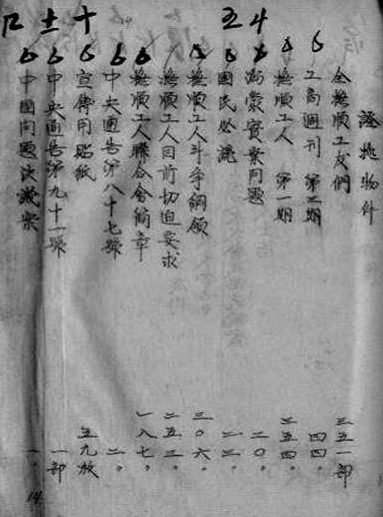 證據物件
全撫順工友們 三五一部
工商週刊 第二期 四四〃
撫順工人 第一期 三五四〃
滿蒙實業問題 二〇〃
國民必讀
撫順工人斗爭綱領 三〇六〃
撫順工人目前切迫要求 三五三〃
撫順工人聯合會簡章 一八七〃
中央通告第八十七號 二〃
宣傳用貼紙 五九枚
中央通告第九十一號 一部
中國問題決議案 一〃
14